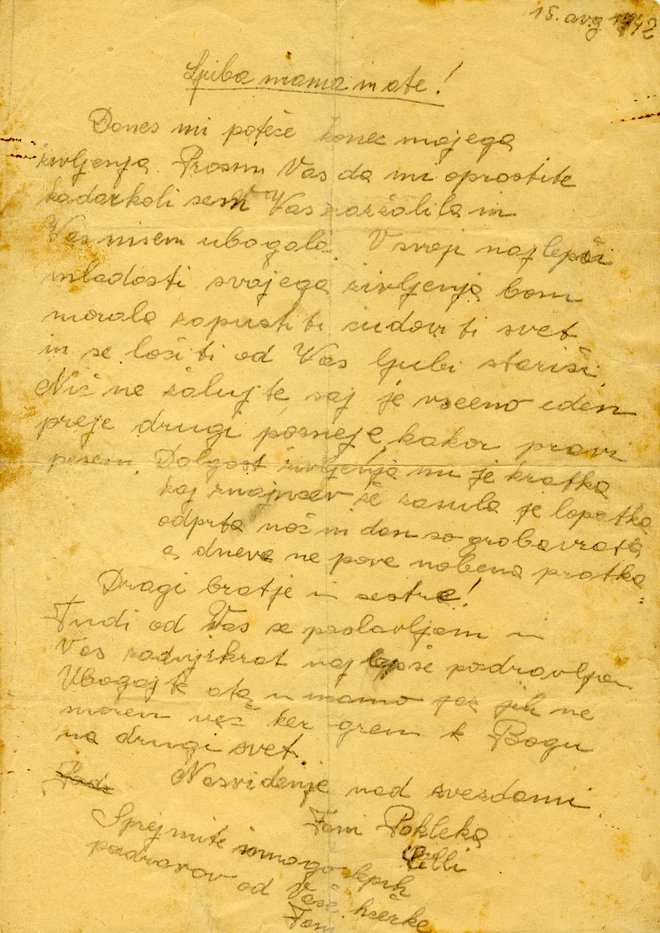 15. avg 1942
Ljuba mama in ate!
Danes mi poteče konec mojega
življenja. Prosim Vas da mi oprostite
kadarkoli sem Vas razžalila in
Vas nisem ubogala. V svoji najlepši
mladosti svojega življenja bom
morala zapustiti čudoviti svet
in se ločiti od Vas ljubi stariši.
Nič ne žalujte, saj je vseeno eden
preje drugi pozneje, kakor pravi
pesem. Dolgost življenja mi je kratka
kaj znancev že zasula je lopatka
odprta noč in dan so groba vrata
a dneva ne pove nobena pratka
Dragi bratje in sestre!
Tudi od Vas se poslavljam in
Vas zadnjikrat najlepše pozdravljam
Ubogajte ata in mamo jez jih ne
morem več ker grem k Bogu
na drugi svet.
Nasvidenje nad zvezdami
Fani Pokleka
Celli
Sprejmite mnogo lepih
pozdravov od Vaše hčerke
Fani